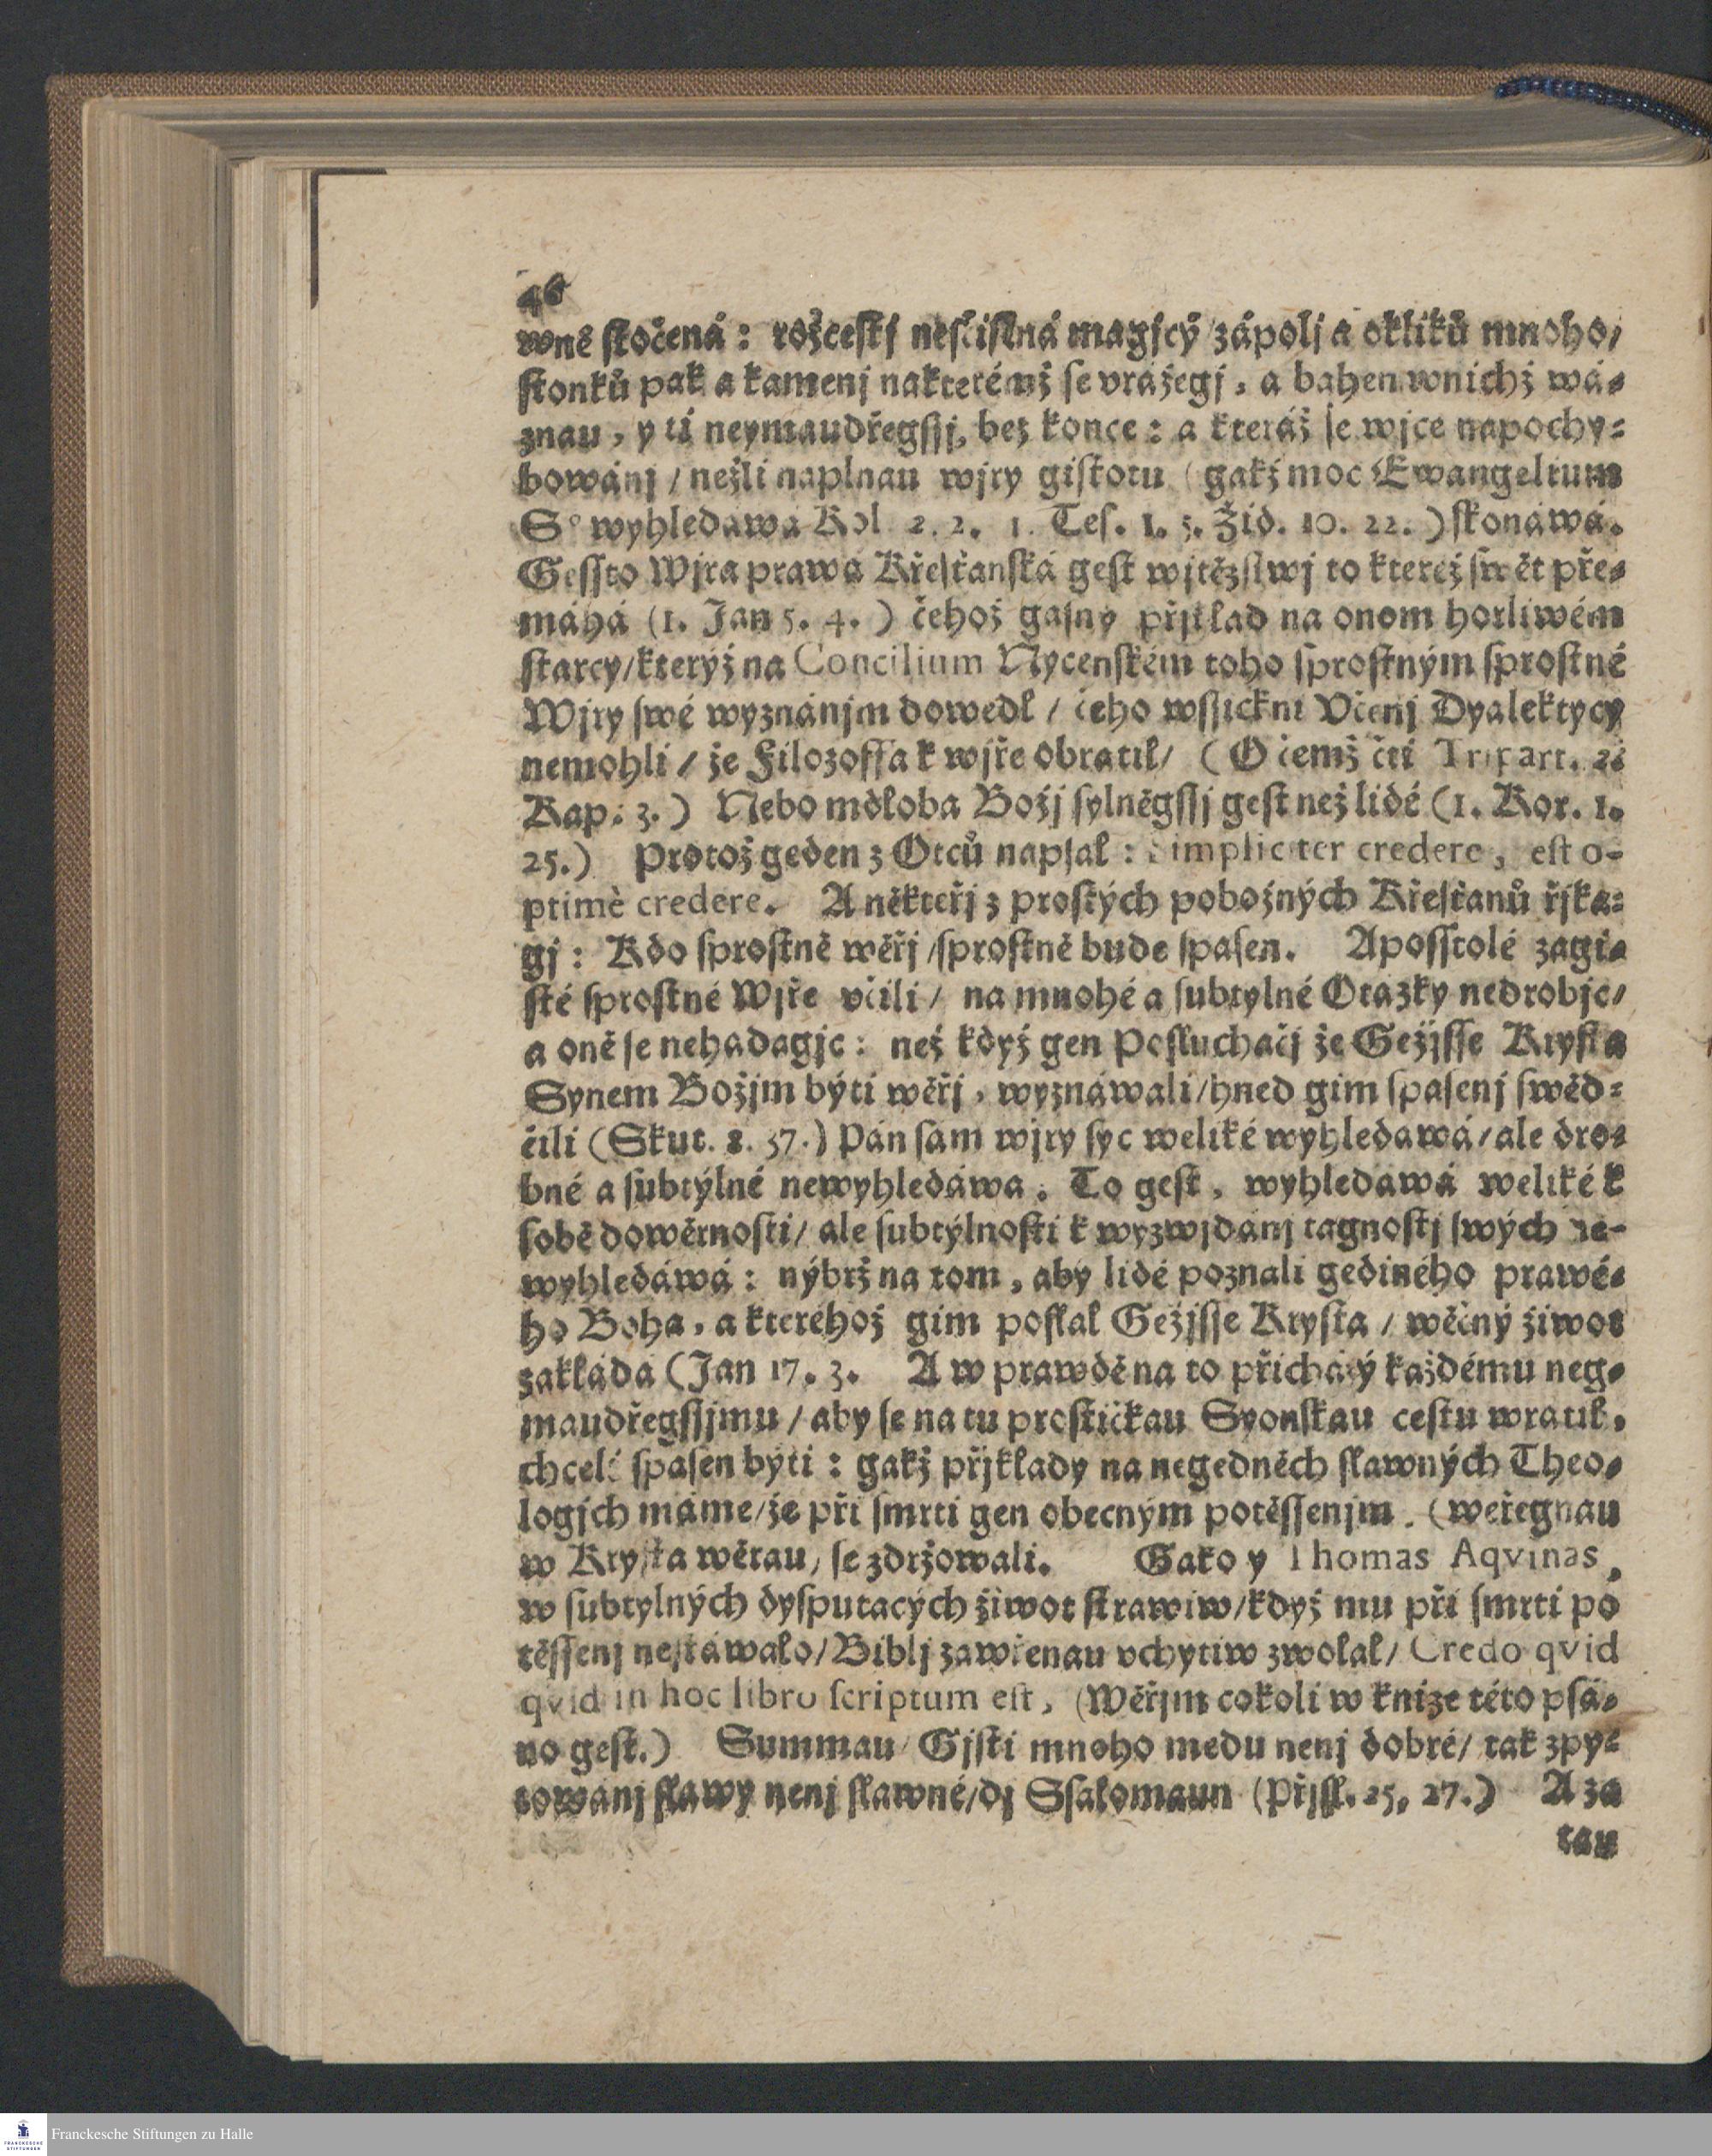 46
wně stočená: rožcestj nesčislná magjcý zápolj a okliků mnoho/
stonků pak a kamenj nakterémž se vrážegj, a bahen wnichž wá-
znau, y ti neymaudřegssj, bez konce: a kteráž se wjce napochy-
bowánj / nežli naplnau wjry gistotu (gakž moc Ewangelium
S° wyhledawá Kol. 2. 2. 1. Tes. 1. 5. Žid. 10. 22.) skonáwá.
Gessto Wjra prawá Křesťanská gest wjtězstwj to kteréž swět pře-
máhá (1. Jan 5. 4.) čehož gasný přjklad na onom horliwém
starcy/kterýž na Concilium Nycenském toho sprostným sprostné
Wjry swé wyznánjm dowedl / čeho wssickni Včenj Dyalektycy
nemohli / že Filozoffa k wjře obratil/ (O čemž čti Tripart. 2.
Kap: 3.) Nebo mdloba Božj sylněgssj gest než lidé (1. Kor. 1.
25.) Protož geden z Otců napsal: Simpliciter credere, est o-
ptimè credere. A někteřj z prostých pobožných Křesťanů řjka-
gj: Kdo sprostně wěřj /sprostně bude spasen. Aposstolé zagi-
sté sprostné Wjře včili / na mnohé a subtylné Otázky nedrobjc/
a oně se nehadagjc: než když gen Posluchačj že Gežjsse Krysta
Synem Božjm býti wěřj, wyznáwali/hned gim spasenj swěd-
čili (Skut. 8. 37.) Pán sám wjry syc weliké wyhledawá/ale dro-
bné a subtýlné newyhledáwa. To gest, wyhledawá weliké k
sobě dowěrnosti/ ale subtýlnosti k wyzwjdánj tagnostj swých ne-
wyhledáwá: nýbrž na tom, aby lidé poznali gediného prawé-
ho Boha, a kteréhož gim poslal Gežjsse Krysta / wěčný žiwot
zakládá (Jan 17. 3. A w prawdě na to přicházý každému neg-
maudřegssjmu / aby se na tu prostičkau Syonskau cestu wratil,
chceli spasen býti: gakž přjklady na negedněch slawných Theo-
logjch máme/že při smrti gen obecným potěssenjm. (weřegnau
w Krysta wěrau, se zdržowali. Gako y Thomas Aqvinas,
w subtylných dysputacých žiwot strawiw/když mu při smrti po
těssenj nestáwalo/Biblj zawřenau vchytiw zwolal/ Credo qvid
qvid in hoc libro scriptum est, (Wěřjm cokoli w knize této psá-
no gest.) Summau Gjsti mnoho medu nenj dobré/ tak zpy-
towánj slawy nenj slawné/dj Ssalomaun (Přjsl. 25, 27.) A za
tau
Franckesche Stiftungen zu Halle